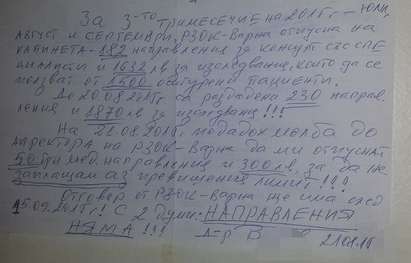 За 3-то тримесечие на 2015 г - юли,
август и септември, РЗОК-Варна отпусна на
кабинета - 182 направления за консулт със спе
циалисти и 1632 лв за изследвания, които да се
ползват от 1500 осигурени пациенти.
До 20.08.2015г са раздадена 230 направ
ления и 1870 лв за изследвания!!!
На 21.08.2015г подадох молба до
директора на РЗОК-Варна да ми отпуснат
50 бр мед. направления и 300 лв, за да не
заплащам аз превишения лимит!!!
Отговор от РЗОК-Варна ще има след
15.09.2015г! С 2 думи: НАПРАВЛЕНИЯ
НЯМА!!! Д-р В